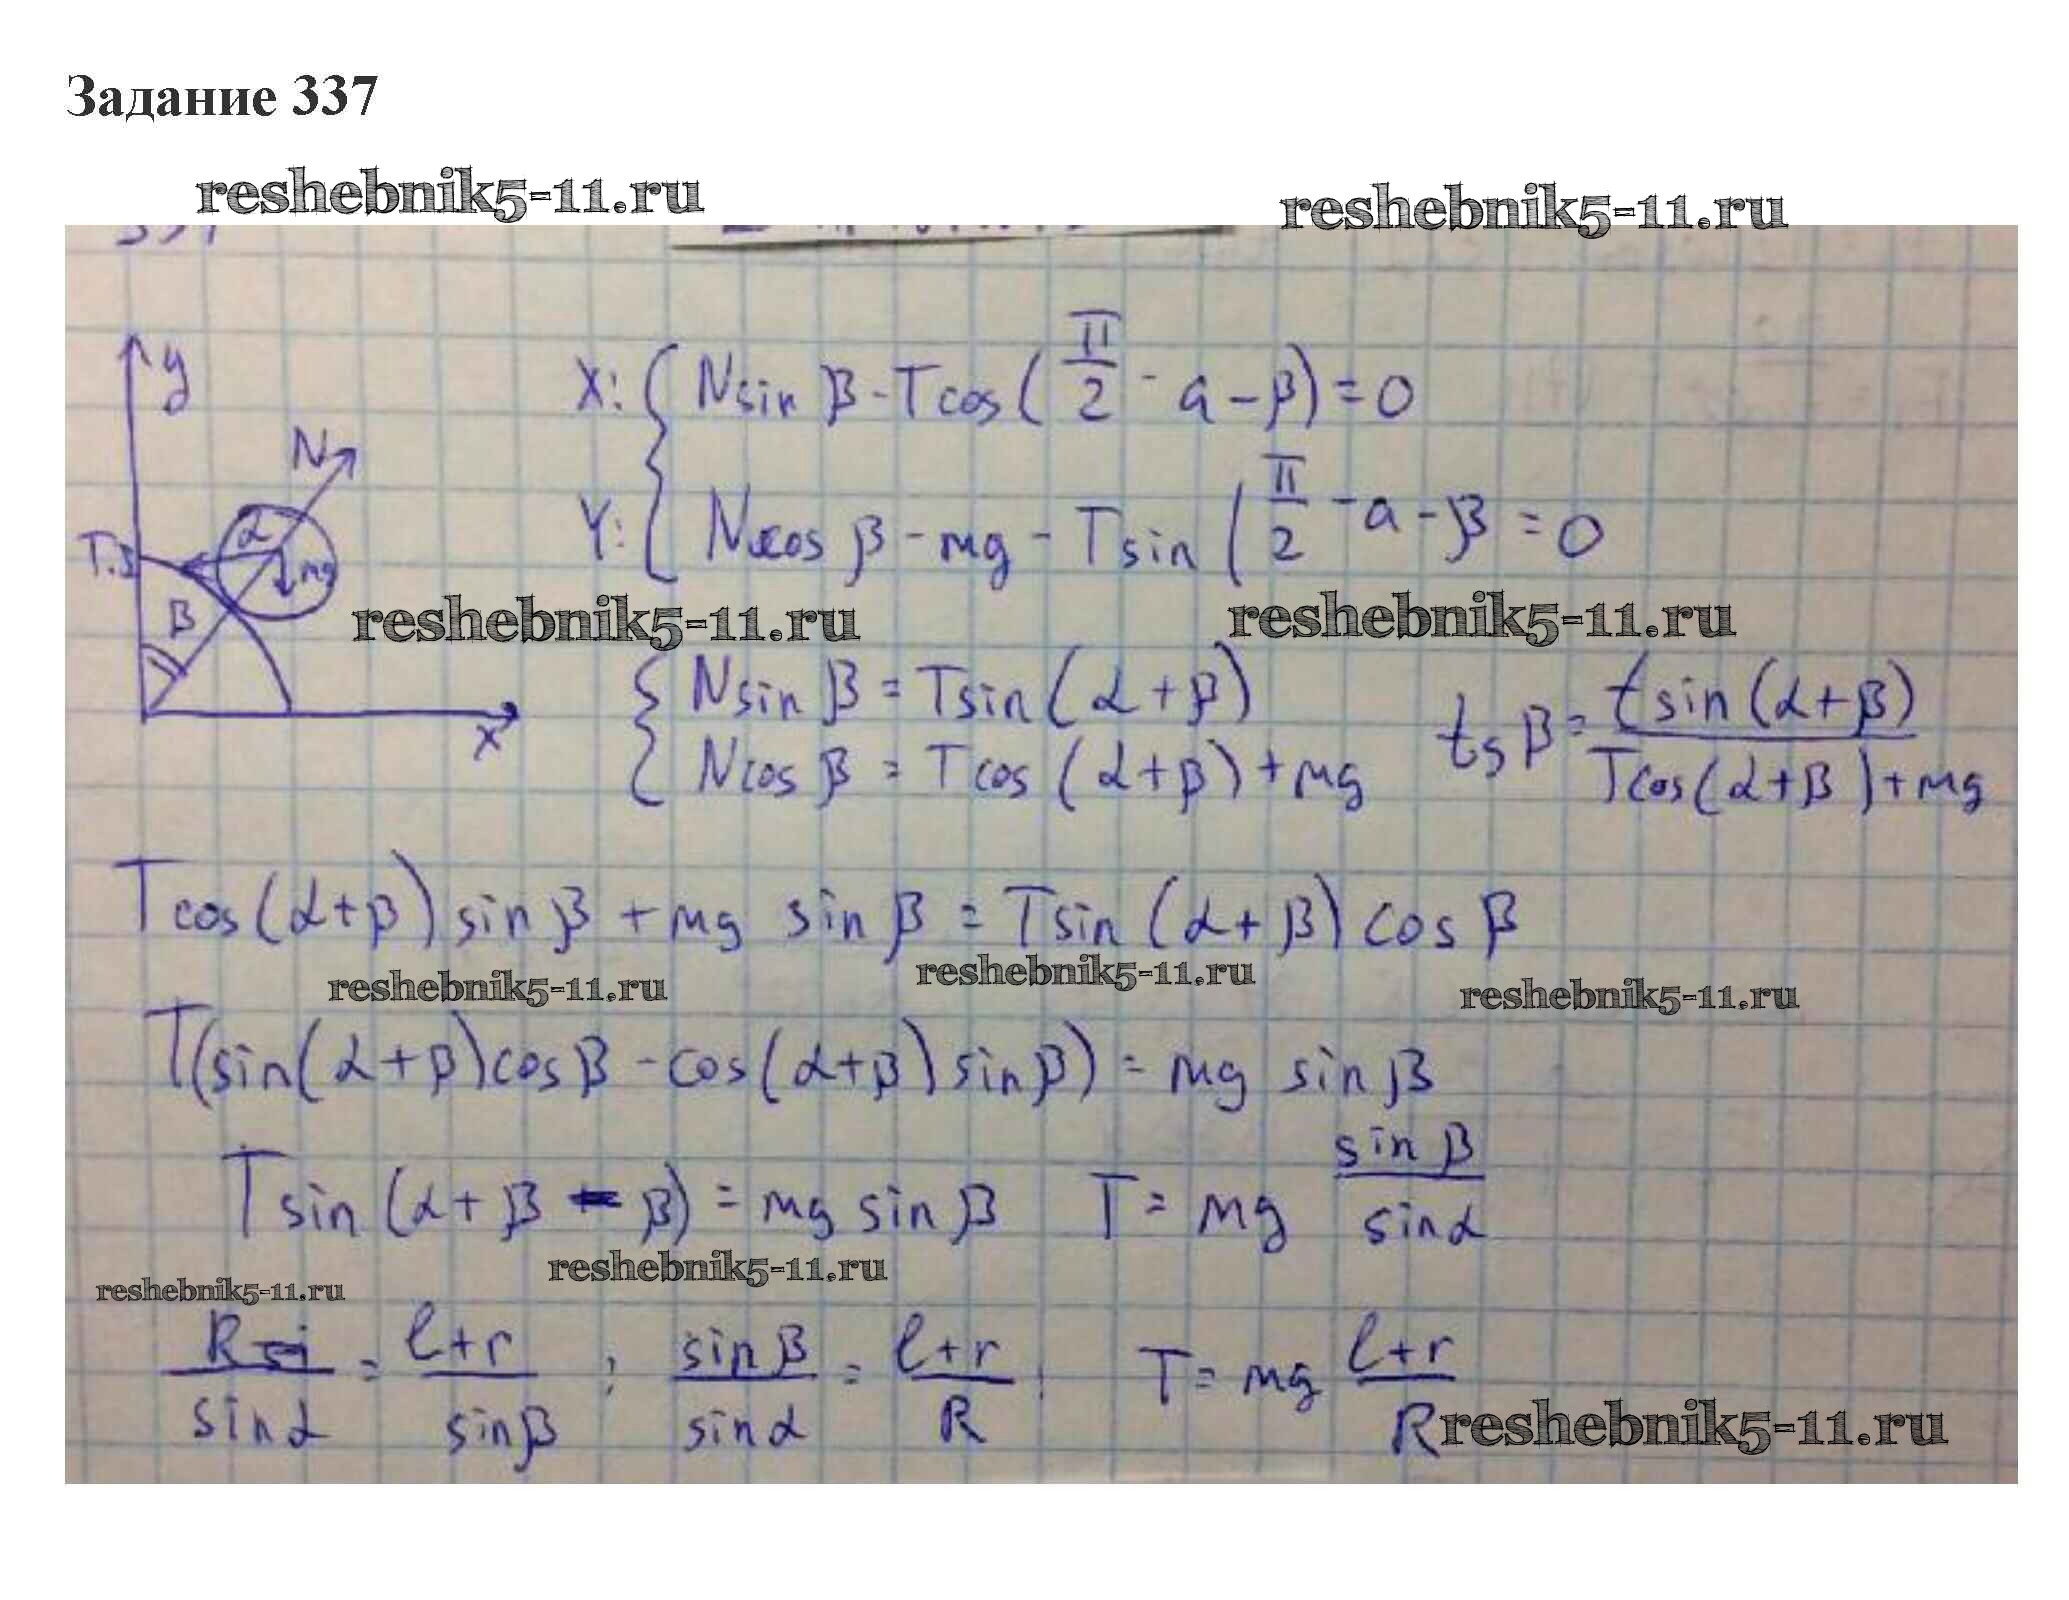 Задание 337
reshebnik5-11.ru
reshebnik5-11.ru
337
y
N
α
T
mg
β
x
X: { N sin β - T cos ( π/2 - a - β ) = 0
Y: { N cos β - mg - T sin ( π/2 - a - β = 0
reshebnik5-11.ru
reshebnik5-11.ru
{ N sin β = T sin (α + β)
{ N cos β = T cos (α + β) + mg
tg β = t sin (α + β) / T cos (α + β) + mg
T cos (α + β) sin β + mg sin β = T sin (α + β) cos β
reshebnik5-11.ru
reshebnik5-11.ru
reshebnik5-11.ru
T (sin (α + β) cos β - cos (α + β) sin β) = mg sin β
T sin (α + β - β) = mg sin β T = mg sin β / sin α
reshebnik5-11.ru
reshebnik5-11.ru
R / sin α = l + r / sin β ; sin β / sin α = l + r / R ; T = mg l + r / R
reshebnik5-11.ru